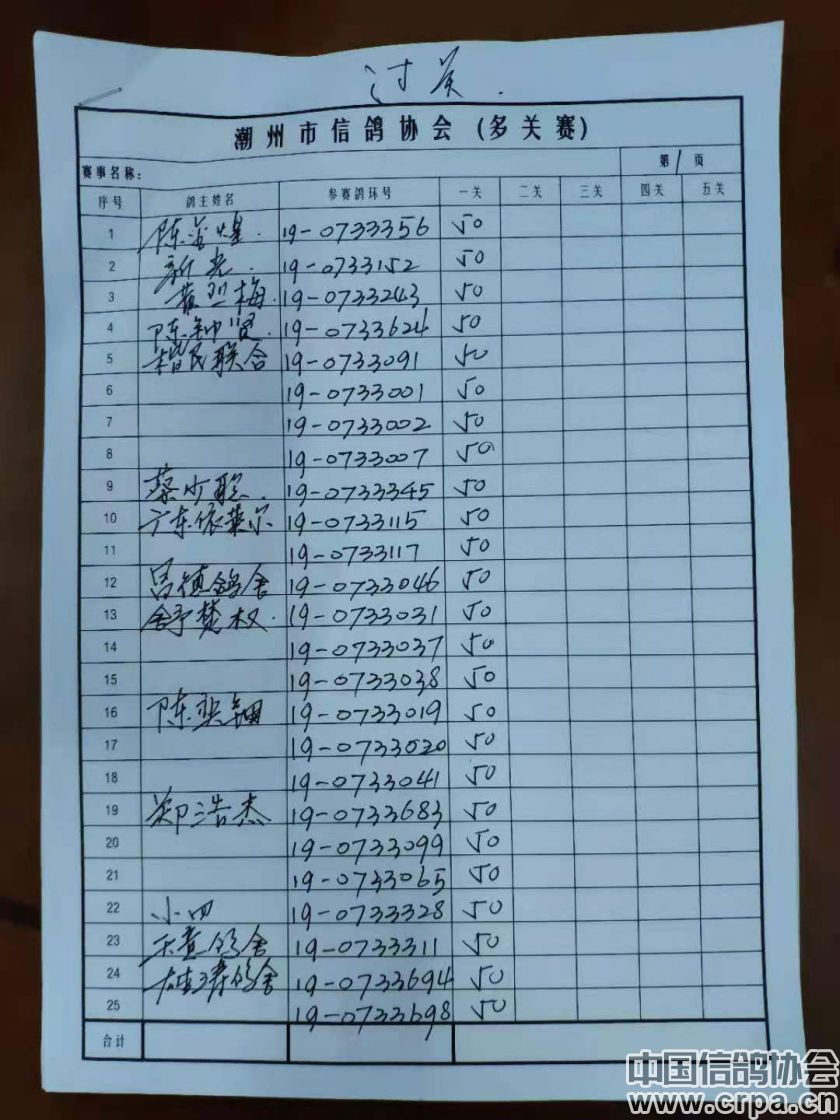 过关.
潮州市信鸽协会(多关赛)
赛事名称: 第1页
序号 鸽主姓名 参赛鸽环号 一关 二关 三关 四关 五关
1 陈 煌. 19-0733356 50
2 新光. 19-0733152 50
3 黄 梅. 19-0733243 50
4 陈钟贤. 19-0733624 50
5 楷民联合 19-0733091 50
6 19-0733001 50
7 19-0733002 50
8 19-0733007 50
9 蔡少聪. 19-0733345 50
10 广东依莱尔 19-0733115 50
11 19-0733117 50
12 昌镇鸽舍 19-0733046 50
13 舒楚权. 19-0733031 50
14 19-0733037 50
15 19-0733038 50
16 陈奕钿 19-0733019 50
17 19-0733020 50
18 19-0733041 50
19 郑浩杰 19-0733683 50
20 19-0733099 50
21 19-0733065 50
22 小四 19-0733328 50
23 鸽舍 19-0733311 50
24 鸽舍 19-0733694 50
25 19-0733698 50
合计
中国信鸽协会
www.crpa.cn